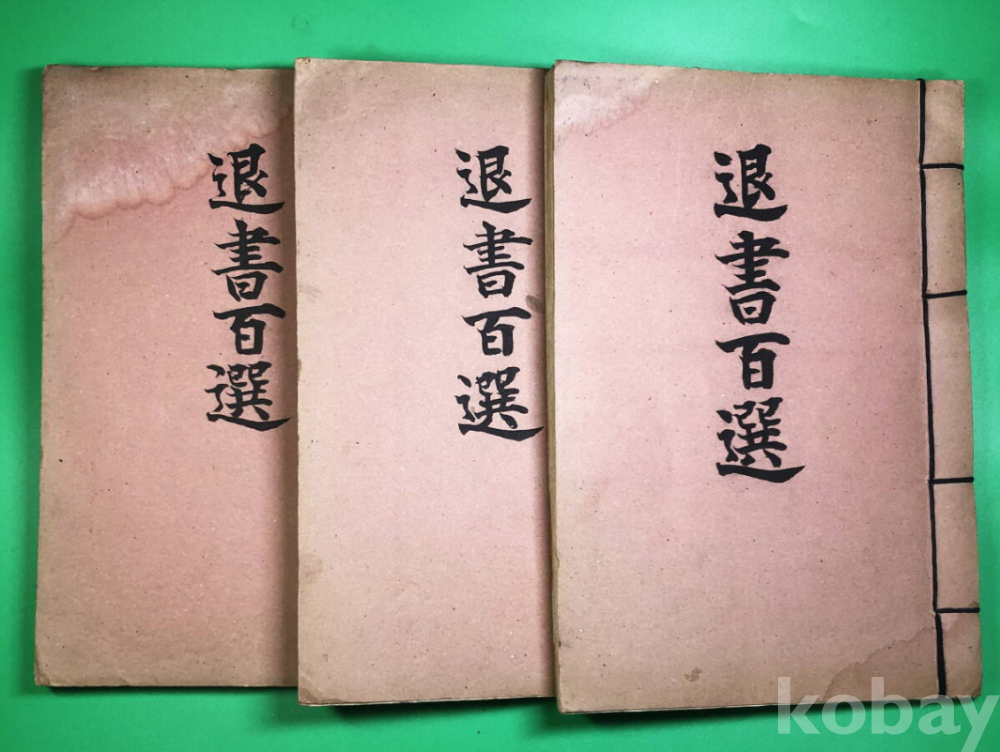 退書百選
退書百選
退書百選
kobay